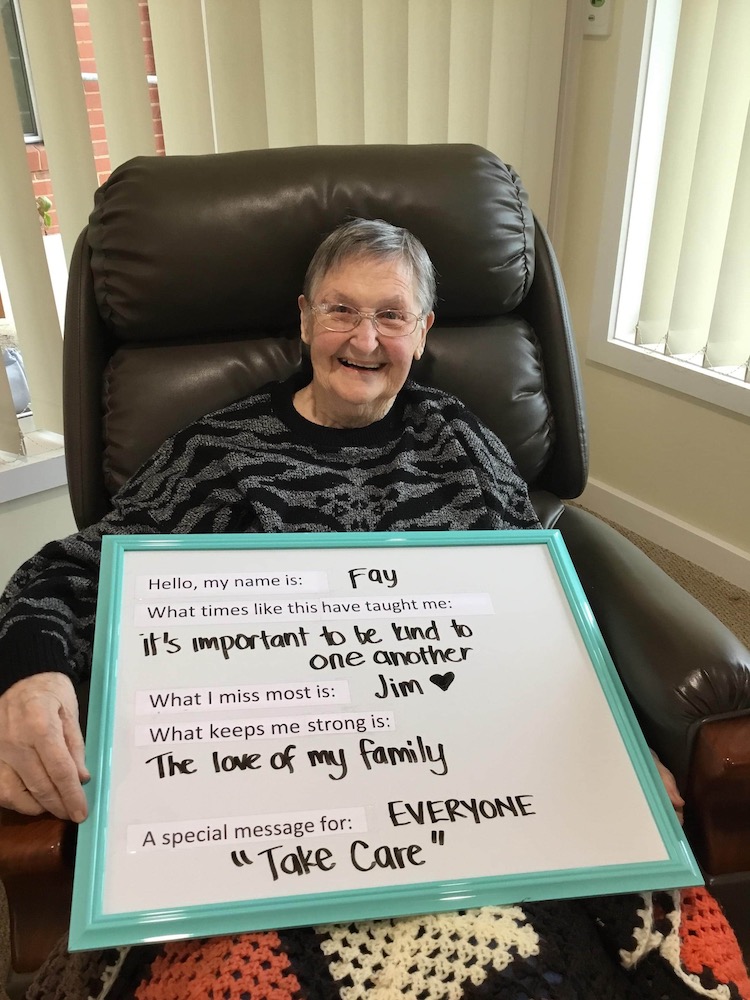 Hello, my name is: Fay
What times like this have taught me:
it's important to be kind to
one another
What I miss most is: Jim ♥
What keeps me strong is:
The love of my family
A special message for: EVERYONE
"Take Care"